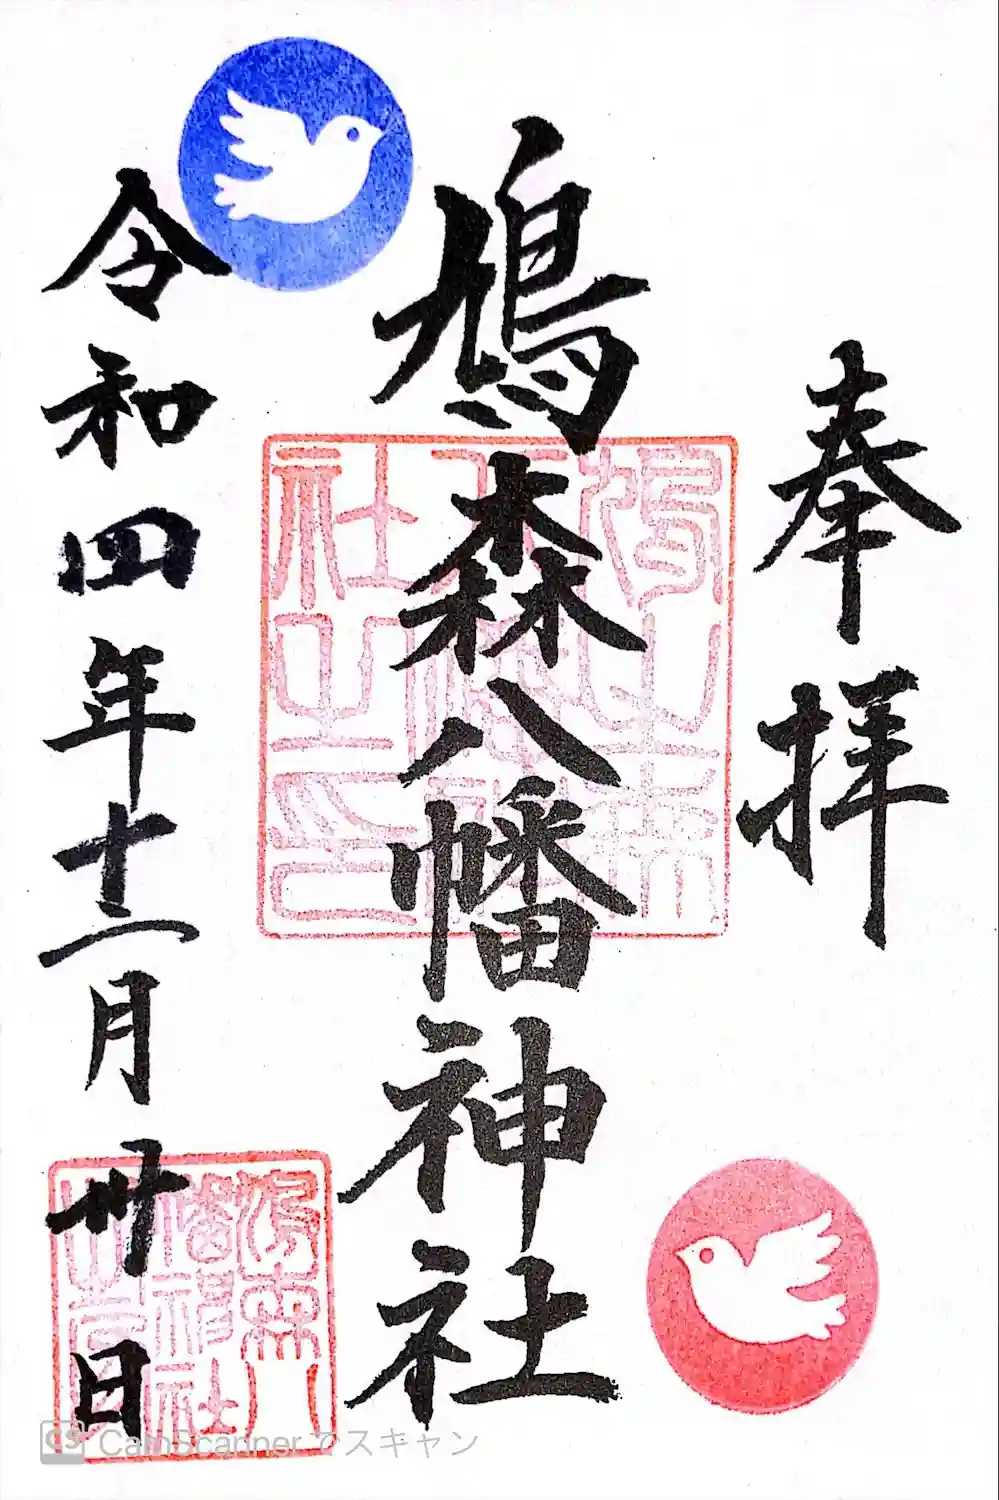 奉拝
鳩森八幡神社
令和四年十二月卅日
鳩之森
八幡神
社之印
鳩森八
幡神社
CS CamScannerでスキャン